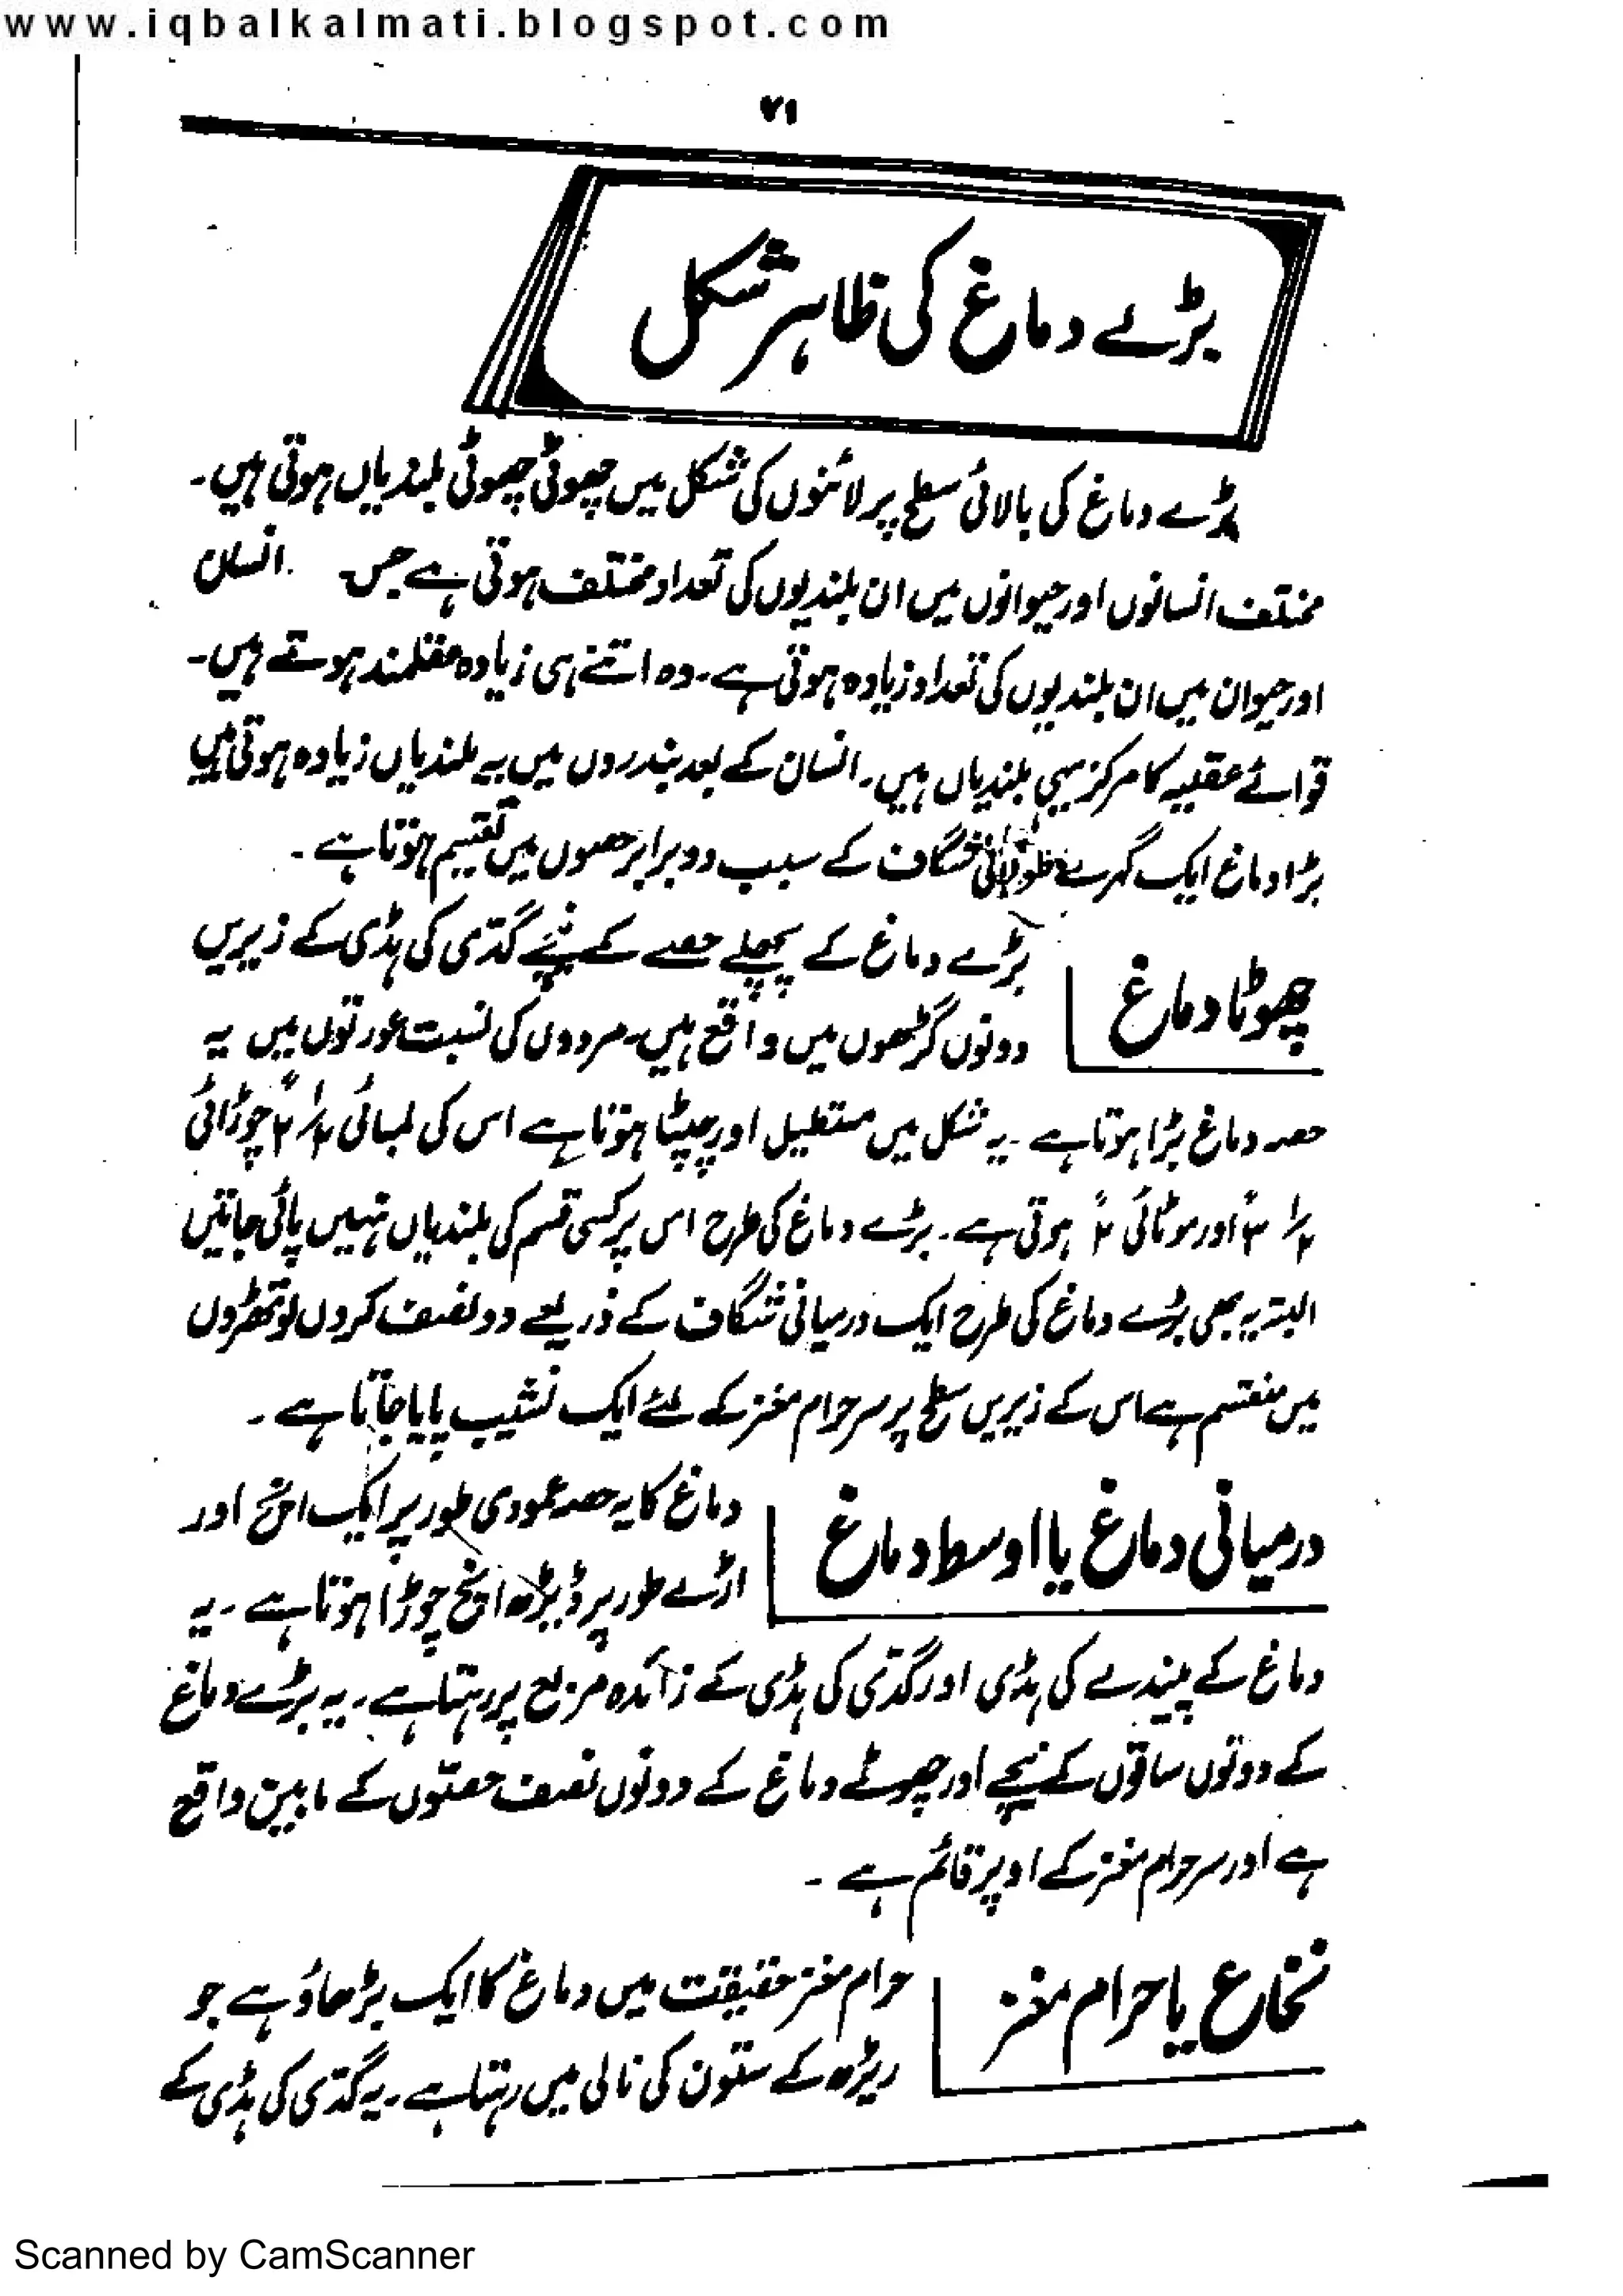 www.iqbalkalmati.blogspot.com
۷۱
بڑے دماغ کی ظاہر شکل
بڑے دماغ کی بالائی سطح پر لائنوں کی شکل میں چھوٹی چھوٹی بلندیاں ہوتی ہیں۔
مختلف انسانوں اور حیوانوں میں ان بلندیوں کی تعداد مختلف ہوتی ہے جس انسان
اور حیوان میں ان بلندیوں کی تعداد زیادہ ہوتی ہے۔ وہ اتنے ہی زیادہ عقلمند ہوتے ہیں۔
قوائے عقلیہ کا مرکز یہی بلندیاں ہیں۔ انسان کے بعد بندروں میں یہ بلندیاں زیادہ ہوتی ہیں
بڑا دماغ ایک گہرے طولانی شگاف کے سبب دو برابر حصوں میں تقسیم ہوتا ہے۔
چھوٹا دماغ
بڑے دماغ کے پچھلے حصے کے نیچے گدّی کی ہڈی کے زیریں
دونوں گڑھوں میں واقع ہیں۔ مردوں کی نسبت عورتوں میں یہ
حصہ دماغ بڑا ہوتا ہے۔ یہ شکل میں مستطیل اور چپٹا ہوتا ہے اس کی لمبائی ۲ ۱/۲ چوڑائی
۳ ۱/۲ اور موٹائی ۲ ہوتی ہے۔ بڑے دماغ کی طرح اس پر کسی قسم کی بلندیاں نہیں پائی جاتیں
البتہ یہ بھی بڑے دماغ کی طرح ایک درمیانی شگاف کے ذریعے دو نصف کروں لوتھڑوں
میں منقسم ہے اس کے زیریں سطح پر سر حرام مغز کے لئے ایک نشیب پایا جاتا ہے۔
درمیانی دماغ یا اوسط دماغ
دماغ کا یہ حصہ عمودی طور پر ایک انچ اور
اڑے طور پر ڈیڑھ انچ چوڑا ہوتا ہے۔ یہ
دماغ کے پیندے کی ہڈی اور گدّی کی ہڈی کے زائدہ مربع پر رہتا ہے۔ یہ بڑے دماغ
کے دونوں ساقوں کے نیچے اور چھوٹے دماغ کے دونوں نصف حصّوں کے مابین واقع
ہے اور سر حرام مغز کے اوپر قائم ہے۔
نخاع یا حرام مغز
حرام مغز حقیقت میں دماغ کا ایک بڑھاؤ ہے جو
ریڑھ کے ستون کی نالی میں رہتا ہے۔ یہ گدّی کی ہڈی کے
Scanned by CamScanner